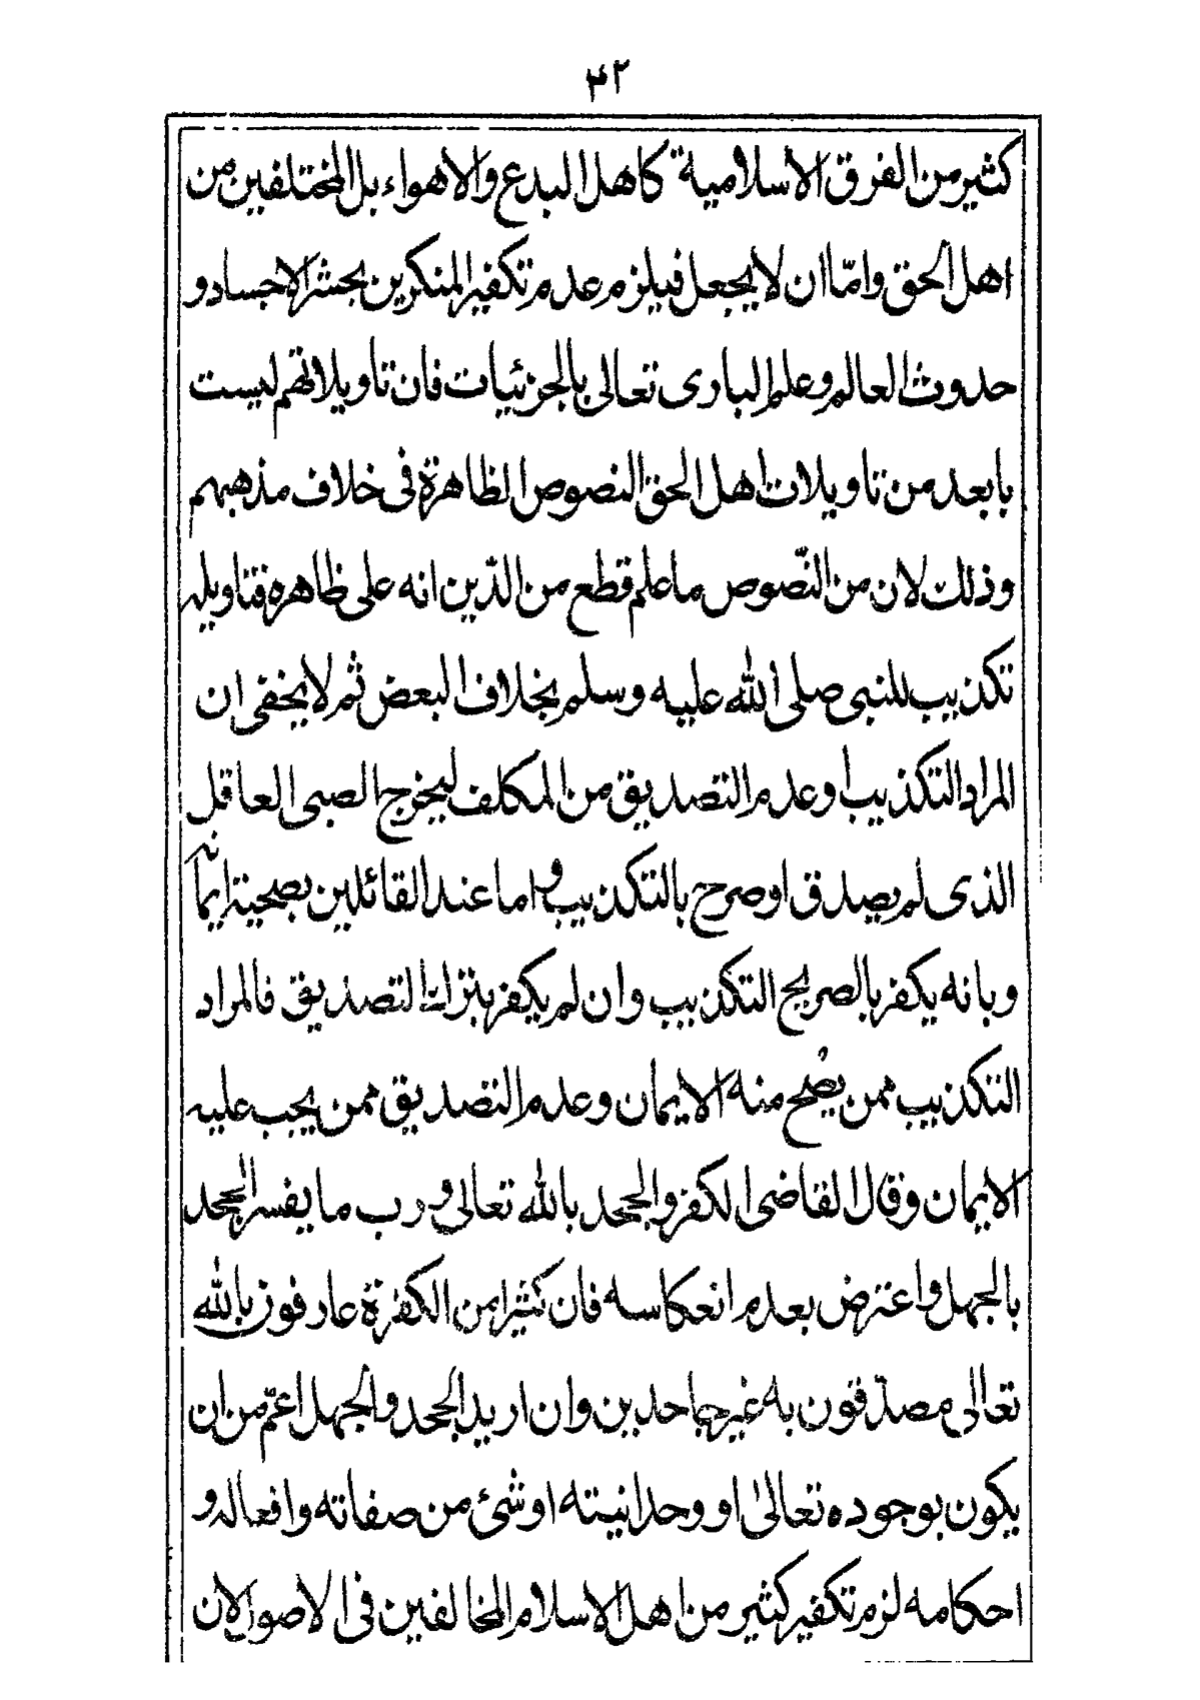 ۴۲
كثير من الفرق الاسلامية كاهل البدع والاهواء بل المختلفين من
اهل الحق وامّا ان لا يجعل فيلزم عدم تكفير المنكرين بحشر الاجساد و
حدوث العالم وعلم البارى تعالى بالجزئيات فان تاويلاتهم ليست
بابعد من تاويلات اهل الحق النصوص الظاهرة فى خلاف مذهبهم
وذلك لان من النّصوص ما علم قطع من الدّين انه على ظاهره فتاويله
تكذيب للنبى صلى الله عليه وسلم بخلاف البعض ثم لا يخفى ان
المراد التكذيب او عدم التصديق من المكلف ليخرج الصبى العاقل
الذى لم يصدق او صرح بالتكذيب واما عند القائلين بصحية ايمانه
وبانه يكفر بالصريح التكذيب وان لم يكفر بترك التصديق فالمراد
التكذيب ممن يصح منه الايمان وعدم التصديق ممن يجب عليه
الايمان وقال القاضى الكفر والجحد بالله تعالى و رب ما يفسر الجحد
بالجهل واعترض بعدم انعكاسه فان كثيرا من الكفرة عارفون بالله
تعالى مصدّقون به غير جاحدين وان اريد الجحد والجهل اعمّ من ان
يكون بوجوده تعالىٰ او وحدانيته او شئ من صفاته وافعاله و
احكامه لزم تكفير كثير من اهل الاسلام المخالفين فى الاصول لان